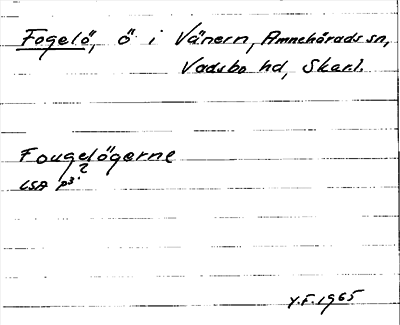 Fogelö, ö i Vänern, Amnehärads sn,
Vadsbo hd, Skarl.
Fougelögerne
LSA p3. 2
Y.F. 1965